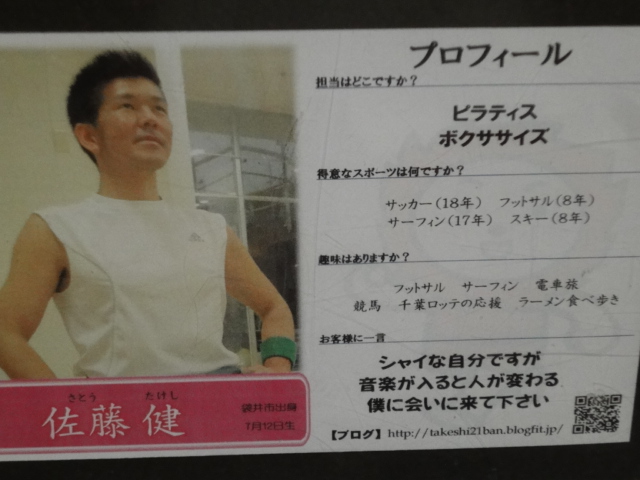 プロフィール
担当はどこですか？
ピラティス
ボクササイズ
得意なスポーツは何ですか？
サッカー(18年) フットサル(8年)
サーフィン(17年) スキー(8年)
趣味はありますか？
フットサル サーフィン 電車旅
競馬 千葉ロッテの応援 ラーメン食べ歩き
お客様に一言
シャイな自分ですが
音楽が入ると人が変わる
僕に会いに来て下さい
【ブログ】http://takeshi21ban.blogfit.jp/
さとう たけし
佐藤 健
袋井市出身
7月12日生